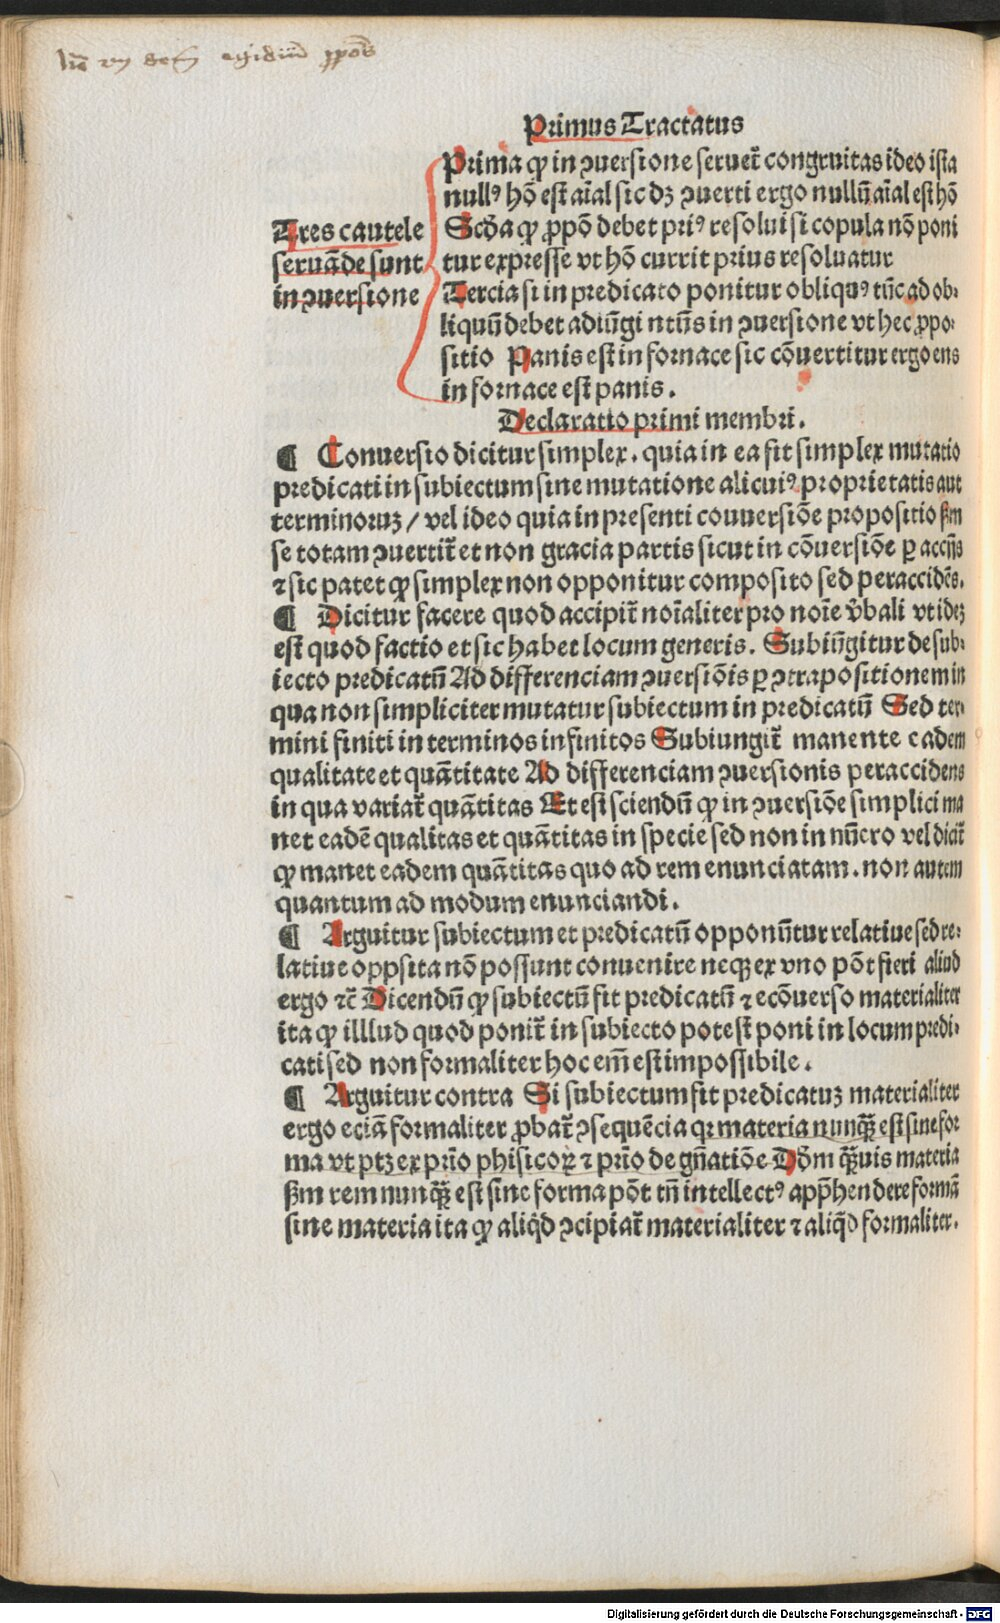 Primus Tractatus
Tres cautele
seruāde sunt
in ꝯuersione
Prima ꝙ in ꝯuersione seruet̄ congruitas ideo ista
null⁹ hō est aīal sic dꝫ ꝯuerti ergo nullū aīal est hō
Scd̄a ꝙ ꝓpō debet pri⁹ resolui si copula nō poni
tur expresse vt hō currit prius resoluatur
Tercia si in predicato ponitur obliqu⁹ tūc ad ob⸗
liquū debet adiūgi ntūs in ꝯuersione vt hec ꝓpo⸗
sitio Panis est in fornace sic cōuertitur ergo ens
in fornace est panis.
Declaratio primi membri.
¶ Conuersio dicitur simplex. quia in ea fit simplex mutatio
predicati in subiectum sine mutatione alicui⁹ proprietatis aut
terminoruꝫ / vel ideo quia in presenti couuersiōe propositio ẜm
se totam ꝯuertit̄ et non gracia partis sicut in cōuersiōe ꝑ accn̄s
⁊ sic patet ꝙ simplex non opponitur composito sed peraccidēs.
¶ Dicitur facere quod accipit̄ noīaliter pro noīe v̄bali vt ideꝫ
est quod factio et sic habet locum generis. Subiūgitur de sub⸗
iecto predicatū Ad differenciam ꝯuersiōis ꝑ ꝯtrapositionem in
qua non simpliciter mutatur subiectum in predicatū Sed ter⸗
mini finiti in terminos infinitos Subiungit̄ manente eadem
qualitate et quātitate Ad differenciam ꝯuersionis peraccidens
in qua variat̄ quātitas Et est sciendū ꝙ in ꝯuersiōe simplici ma
net eadē qualitas et quātitas in specie sed non in nūero vel dicit̄
ꝙ manet eadem quātitas quo ad rem enunciatam. non autem
quantum ad modum enunciandi.
¶ Arguitur subiectum et predicatū opponūtur relatiue sed re⸗
latiue oppsita nō possunt conuenire neqꝫ ex vno pōt fieri aliud
ergo ⁊c̄ Dicendū ꝙ subiectū fit predicatū ⁊ ecōuerso materialiter
ita ꝙ illlud quod ponit̄ in subiecto potest poni in locum predi⸗
cati sed non formaliter hoc em̄ est impossibile.
¶ Arguitur contra Si subiectum fit predicatuꝫ materialiter
ergo eciā formaliter ꝓbat̄ ꝯsequēcia qꝛ materia nunqꝫ̄ est sine for
ma vt ptꝫ ex prīo phisicoꝝ ⁊ prīo de gn̄atiōe Dd̄m qꝫ̄uis materia
ẜm rem nunqꝫ̄ est sine forma pōt tn̄ intellect⁹ app̄hendere formā
sine materia ita ꝙ aliq̄d ꝯcipiat̄ materialiter ⁊ aliq̄d formaliter.
Digitalisierung gefördert durch die Deutsche Forschungsgemeinschaft - DFG